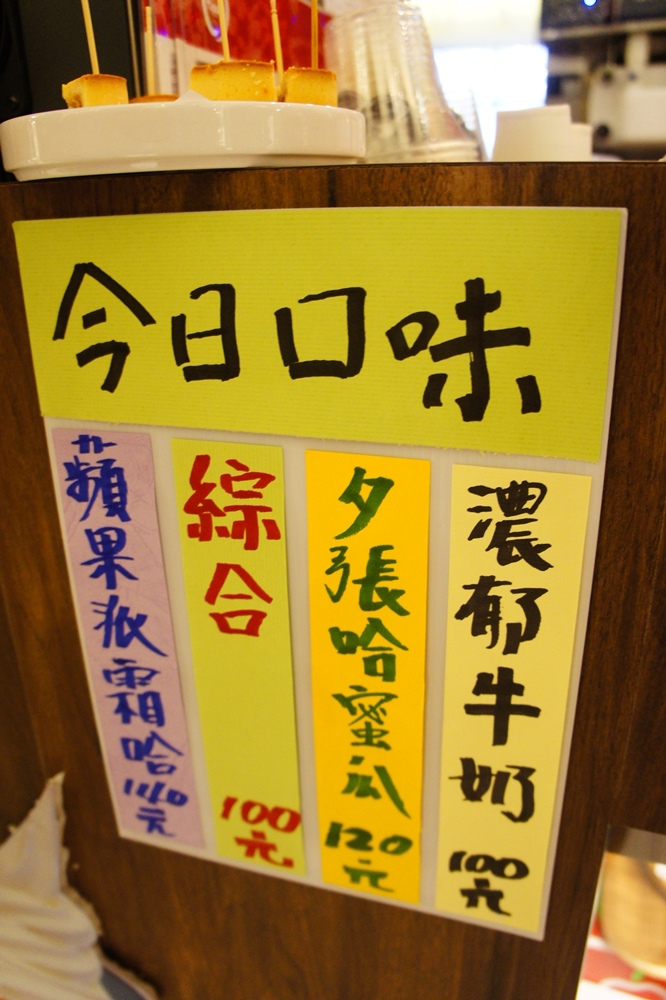 今日口味
濃郁牛奶
100
元
夕張哈蜜瓜
120
元
綜合
100
元
蘋果派霜哈
140
元